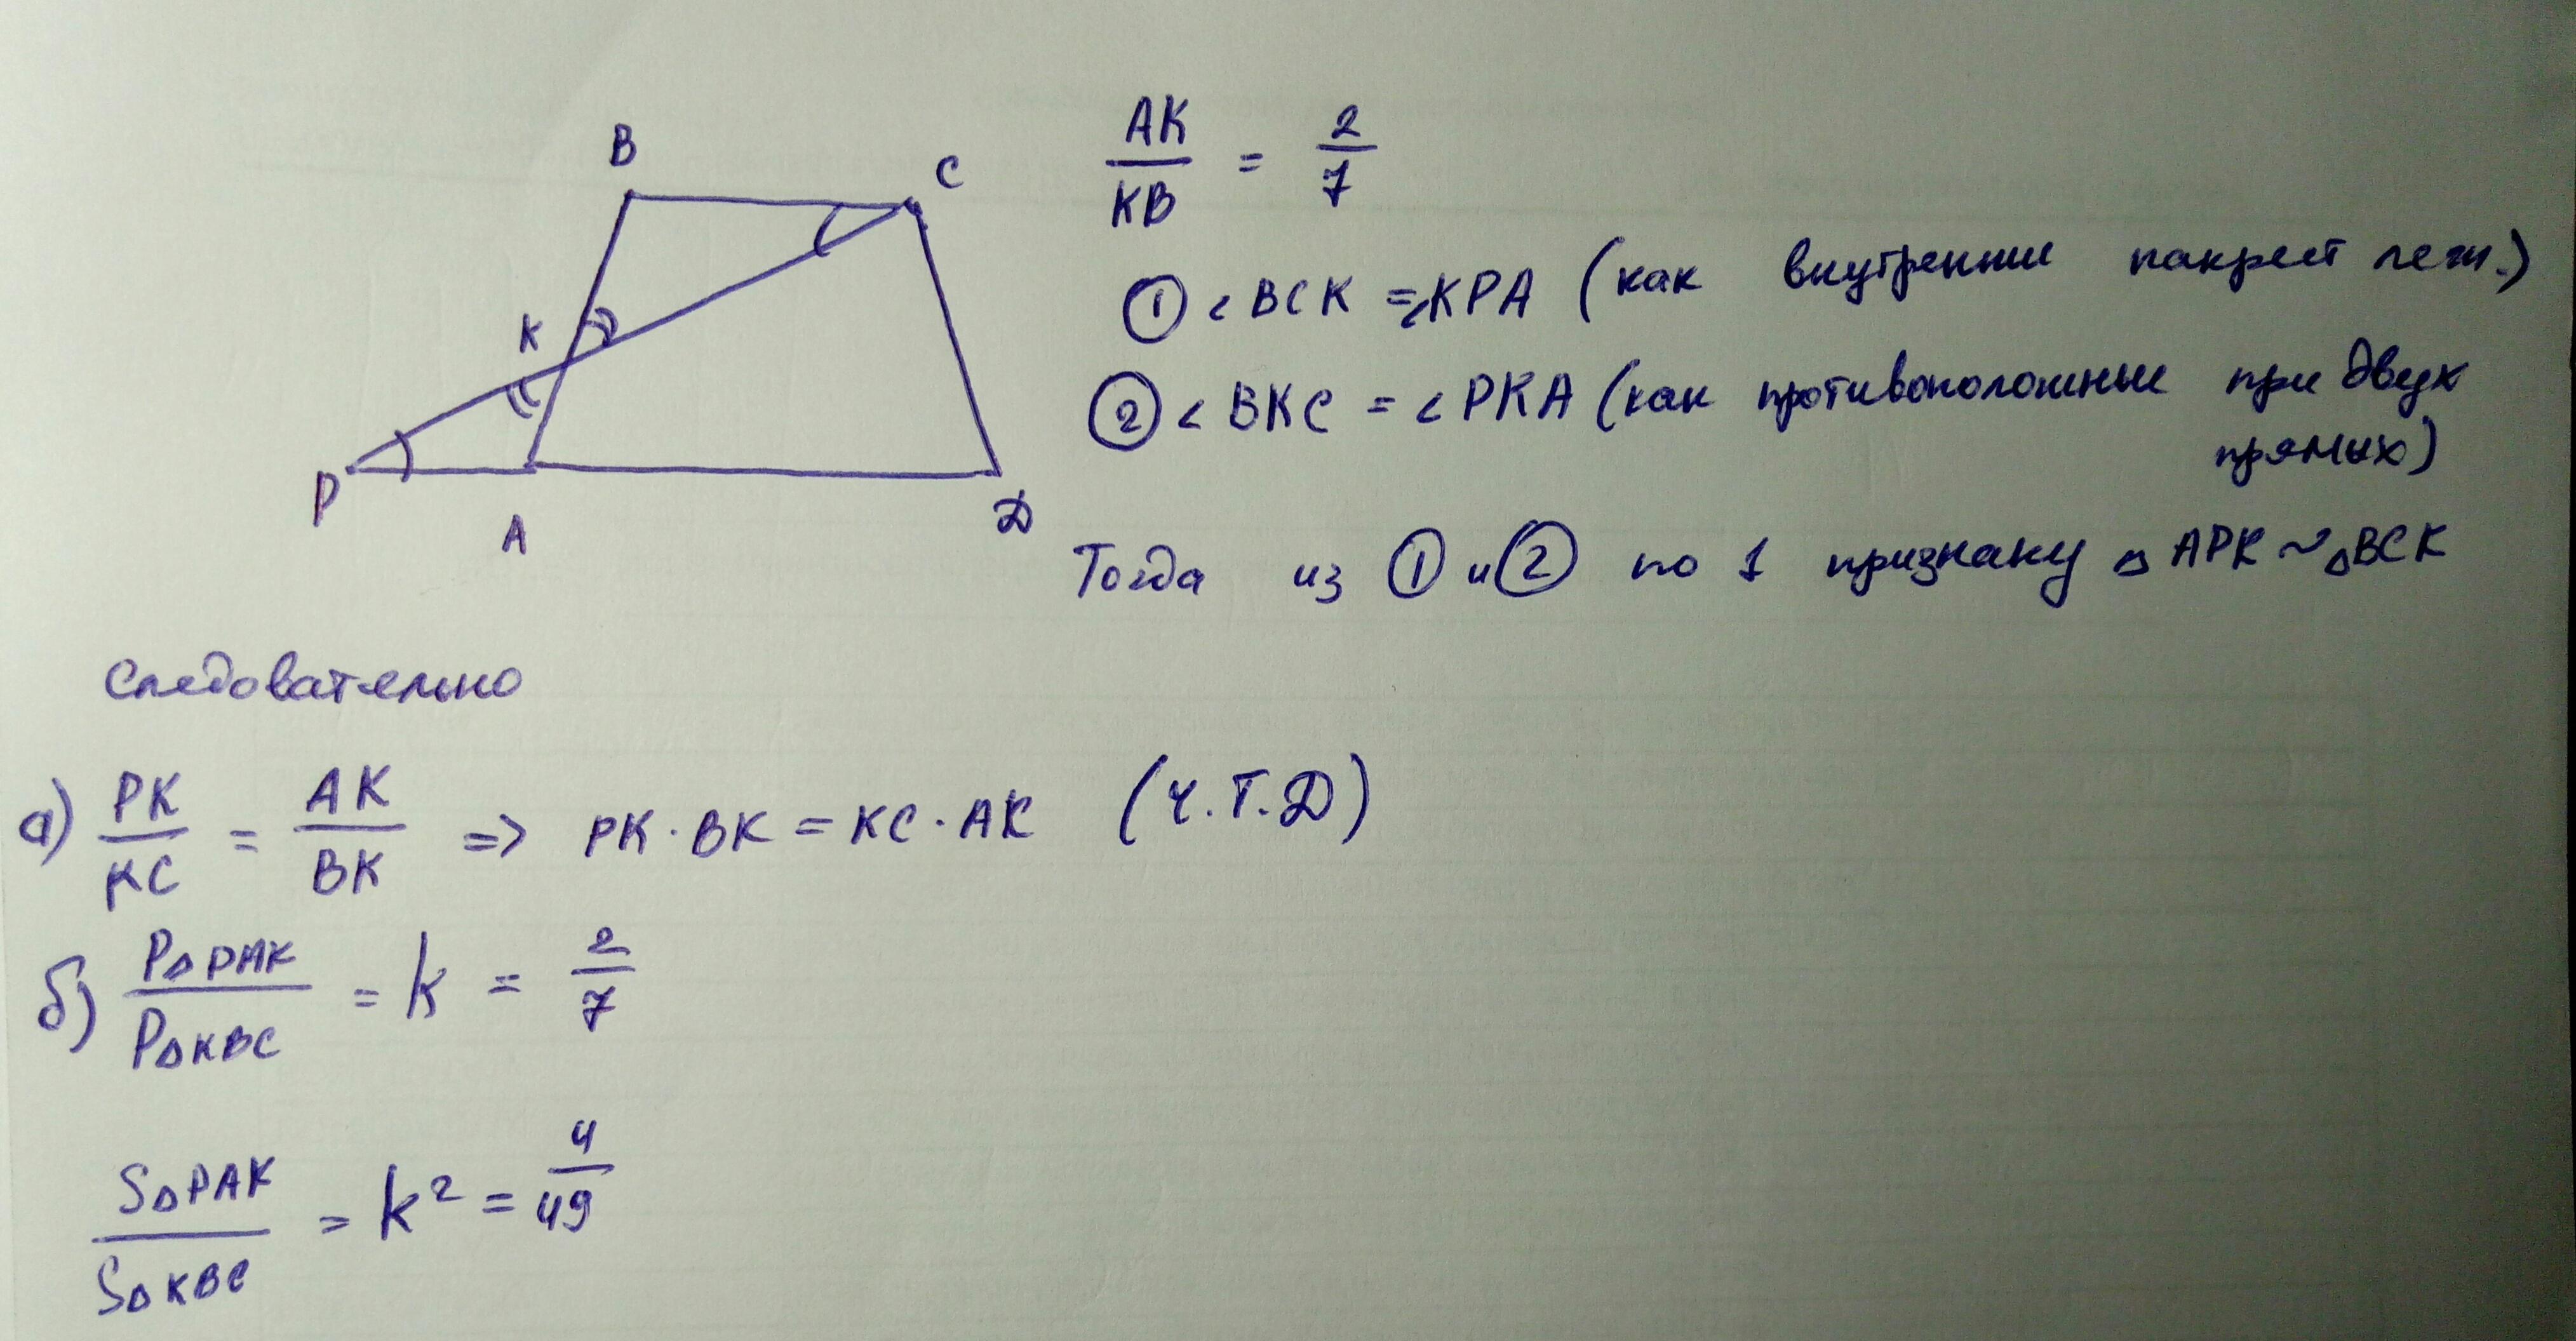 B
C
K
P
A
D
AK/KB = 2/7
① < BCK = < KPA (как внутренние накрест леж.)
② < BKC = < PKA (как противоположные при двух
прямых)
Тогда из ① и ② по 1 признаку △ APK ~ △ BCK
Следовательно
а) PK/KC = AK/BK => PK · BK = KC · AK (Ч.Т.Д)
б) P△PAK/P△KBC = k = 2/7
S△PAK/S△KBC = k² = 4/49